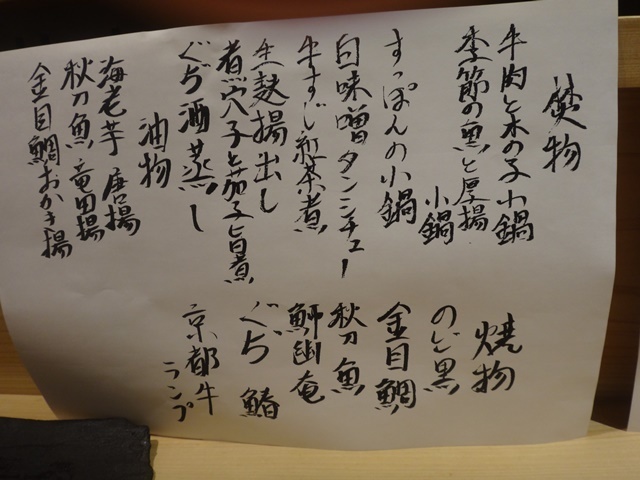 焚物
牛肉と木の子小鍋
季節の魚と厚揚
小鍋
すっぽんの小鍋
白味噌タンシチュー
牛すじ紅茶煮
生麸揚出し
煮穴子と茄子旨煮
ぐぢ酒蒸し
油物
海老芋 唐揚
秋刀魚 竜田揚
金目鯛おかき揚
焼物
のど黒
金目鯛
秋刀魚
鰤幽庵
ぐぢ 鰆
京都牛
ランプ